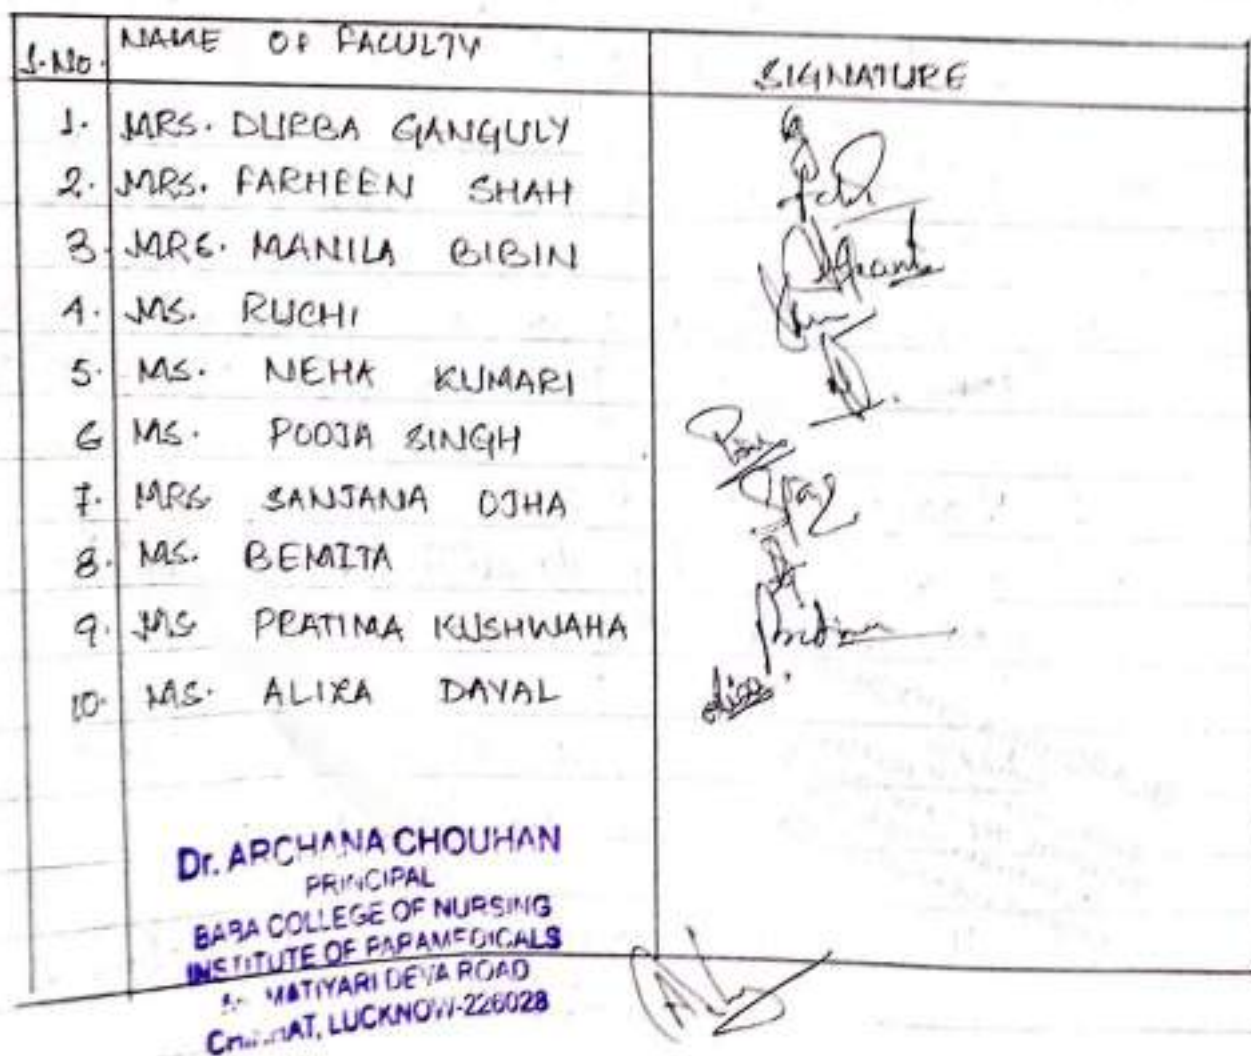 S.No. NAME OF FACULTY SIGNATURE
1. MRS. DURBA GANGULY
2. MRS. FARHEEN SHAH
3. MRS. MANILA BIBIN
4. MS. RUCHI
5. MS. NEHA KUMARI
6 MS. POOJA SINGH
7. MRS SANJANA OJHA
8. MS. BEMITA
9. MS PRATIMA KUSHWAHA
10. MS. ALIZA DAYAL
Dr. ARCHANA CHOUHAN
PRINCIPAL
BABA COLLEGE OF NURSING
INSTITUTE OF PARAMEDICALS
MATIYARI DEVA ROAD
LUCKNOW-226028